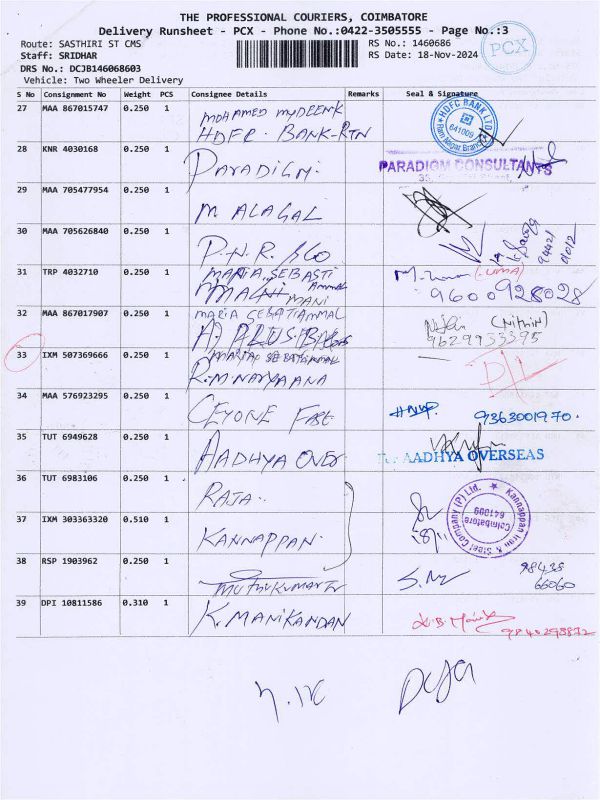 THE PROFESSIONAL COURIERS, COIMBATORE
Delivery Runsheet - PCX - Phone No.:0422-3505555 - Page No.:3
Route: SASTHIRI ST CMS
RS No.: 1460686
PCX
Staff: SRIDHAR
RS Date: 18-Nov-2024
DRS No.: DCJB146068603
Vehicle: Two Wheeler Delivery
S No Consignment No Weight PCS Consignee Details Remarks Seal & Signature
27 MAA 867015747 0.250 1 MOHAMED MYDEENK
HDFC. BANK-RTN
HDFC BANK LTD
641009
Ram Nagar Branch
28 KNR 4030168 0.250 1 PARADIGM.
PARADIGM CONSULTANTS
29 MAA 705477954 0.250 1 M ALAGAL
30 MAA 705626840 0.250 1 P.N.R. &CO
31 TRP 4032710 0.250 1 MARIA SEBASTI
Ammal
MANI
(UMA)
9600928028
32 MAA 867017907 0.250 1 MARIA SEBATIAMMAL
(Nithin)
9629933395
33 IXM 507369666 0.250 1
R.M NARYAANA
D/L
34 MAA 576923295 0.250 1 CEYONE FABE
9363001970.
35 TUT 6949628 0.250 1 AADHYA OVER
AADHYA OVERSEAS
36 TUT 6983106 0.250 1 RAJA.
37 IXM 303363320 0.510 1 KANNAPPAN.
18/11
Kannappan Iron & Steel Company (P) Ltd.
Coimbatore
641009
38 RSP 1903962 0.250 1 MUTHUKUMAR
98438
66060
39 DPI 10811586 0.310 1 K. MANIKANDAN